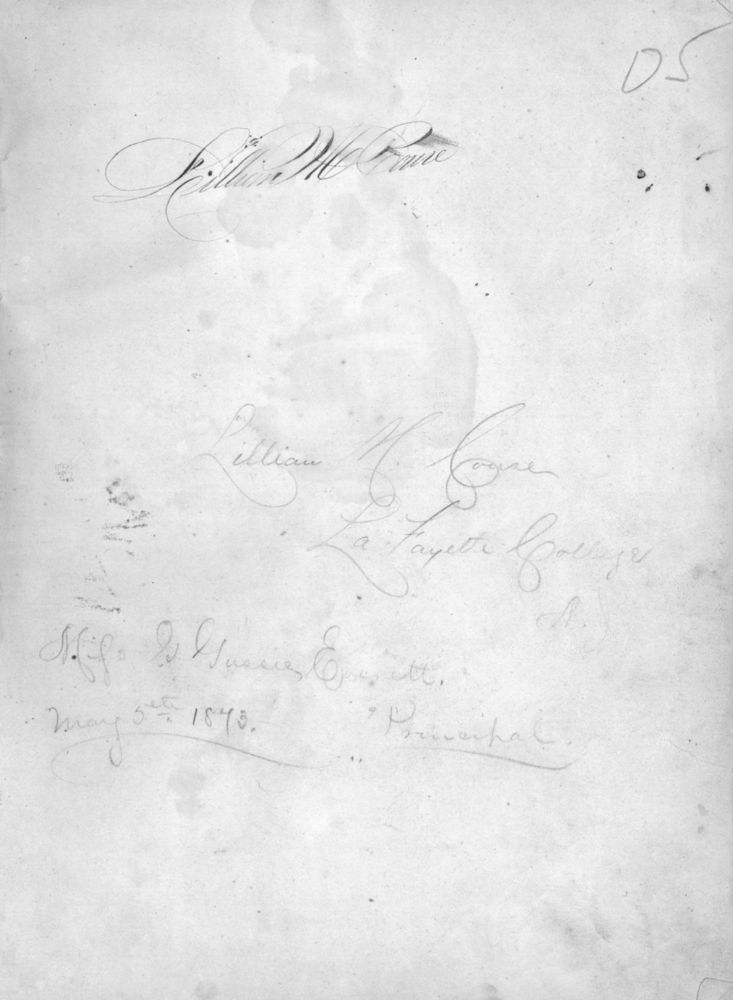 D5
Lillian M Couse
Lillian M. Couse
La Fayette College
N. J
Miss G Gussie Everett.
May 5th 1873. Principal.